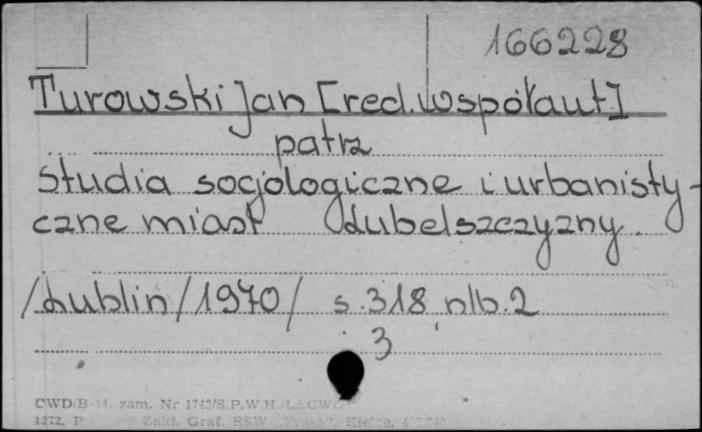 166228
Turowski Jan [red. współaut.]
patrz
Studia socjologiczne i urbanisty-
czne miast Lubelszczyzny.
/Lublin/1970/ s. 318 nlb. 2
3
CWD/B-14. zam. Nr 1743/S.P.W.H.
1272. Zakł. Graf. RSW „Prasa", Kielce,